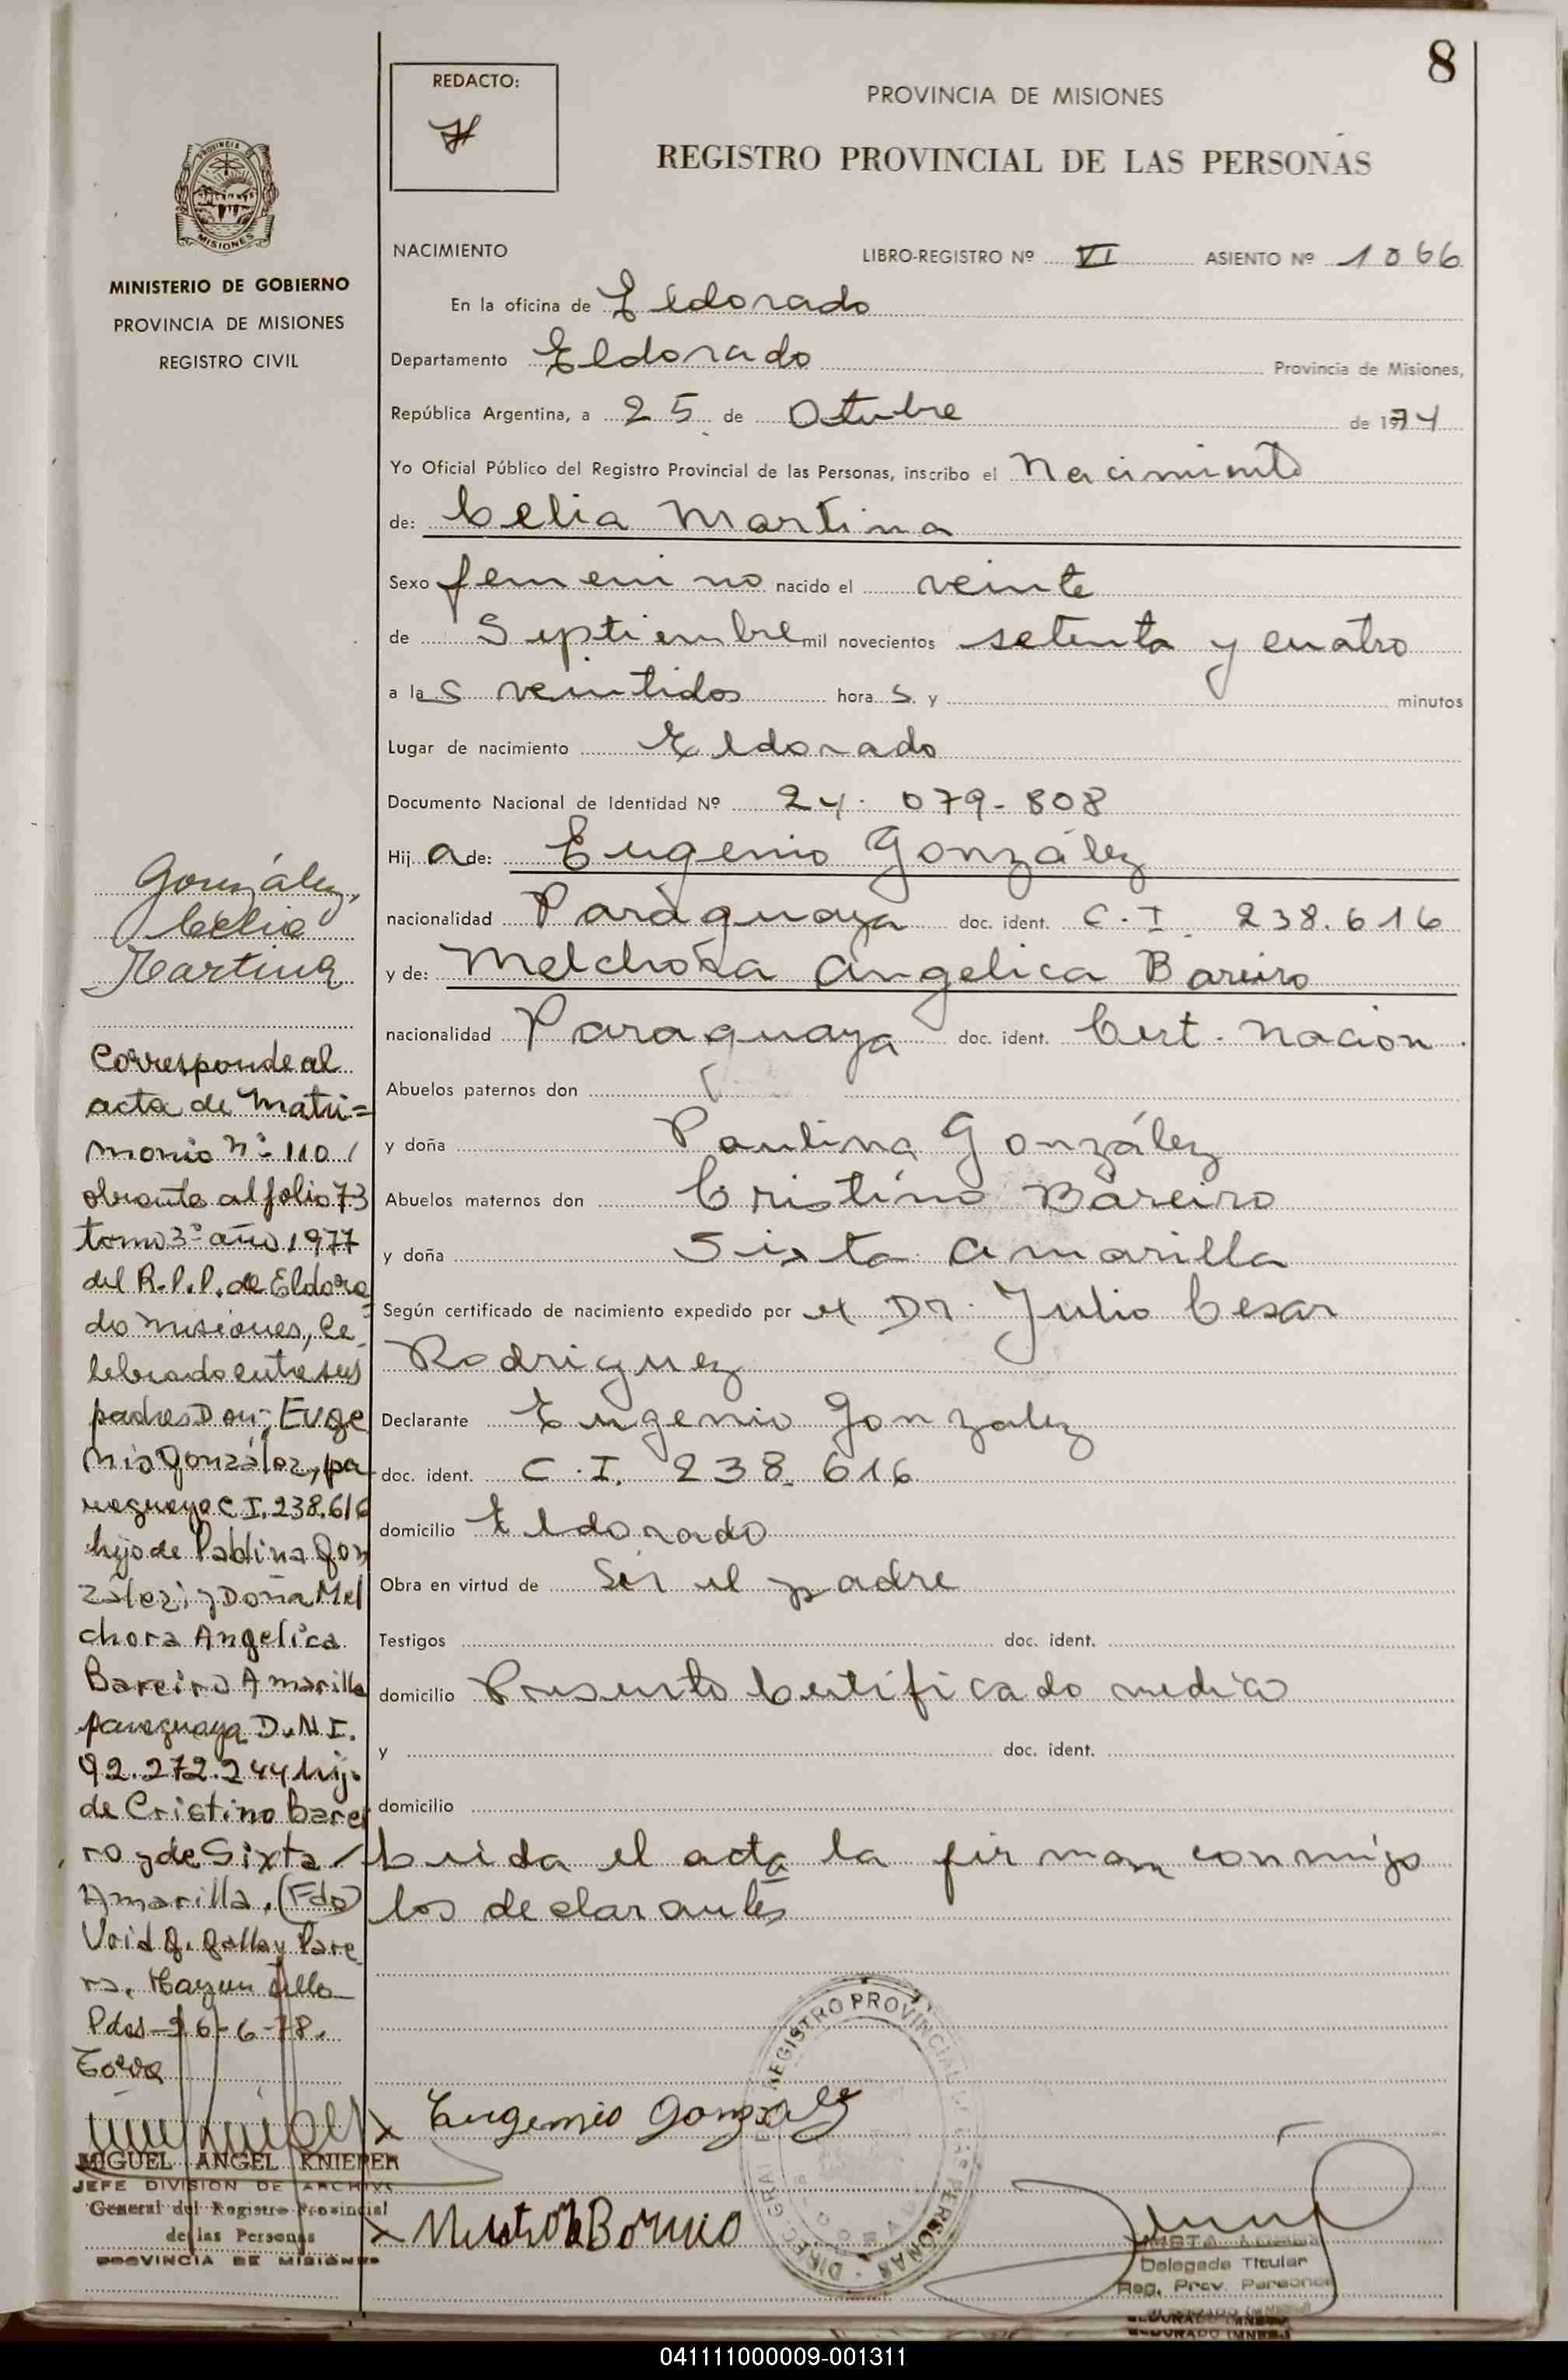 8
REDACTO:
PROVINCIA DE MISIONES
REGISTRO PROVINCIAL DE LAS PERSONAS
PROVINCIA DE
MISIONES
MINISTERIO DE GOBIERNO
PROVINCIA DE MISIONES
REGISTRO CIVIL
NACIMIENTO LIBRO-REGISTRO Nº VI ASIENTO Nº 1066
En la oficina de Eldorado
Departamento Eldorado Provincia de Misiones,
República Argentina, a 25 de Octubre de 1974
Yo Oficial Público del Registro Provincial de las Personas, inscribo el Nacimiento
de: Celia Martina
Sexo femenino nacido el veinte
de Septiembre mil novecientos setenta y cuatro
a las veintidos horas y minutos
Lugar de nacimiento Eldorado
Documento Nacional de Identidad Nº 24.079-808
Hija de: Eugenio González
nacionalidad Paraguaya doc. ident. C.I. 238.616
y de: Melchora Angelica Bareiro
nacionalidad Paraguaya doc. ident. Cert. Nacion.
Abuelos paternos don
y doña Paulina González
Abuelos maternos don Cristino Bareiro
y doña Sixta Amarilla
Según certificado de nacimiento expedido por el Dr. Julio Cesar
Rodriguez
Declarante Eugenio Gonzalez
doc. ident. C.I. 238.616
domicilio Eldorado
Obra en virtud de Ser el padre
Testigos doc. ident.
domicilio Presento Certificado medico
y doc. ident.
domicilio
Leida el acta la firman conmigo
los declarantes
González,
Celia
Martina
Corresponde al
acta de Matri=
monio Nº 110/
obrante al folio 73
tomo 3º año 1977
del R.P.P. de Eldora
do Misiones, Ce-
lebrado entre sus
padres Don: Euge
nio González, pa-
raguayo C I. 238.616
hijo de Paulina Gon
zález; y Doña Mel
chora Angelica
Bareiro Amarilla
paraguaya D.N.I.
92.272.244 hija
de Cristino Barei
ro y de Sixta
Amarilla. (Fdo)
Pdas 26-6-78.
MIGUEL ANGEL KNIEPER
JEFE DIVISION DE ARCHIVO
General del Registro Provincial
de las Personas
PROVINCIA DE MISIONES
x Eugenio Gonzalez
x
REGISTRO PROVINCIAL DE LAS PERSONAS
Delegada Titular
Reg. Prov. Personas
ELDORADO (MNES.)
041111000009-001311